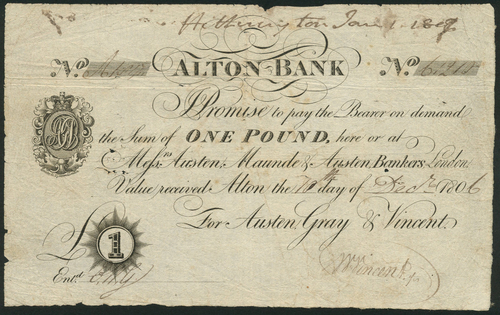 Jan 1 1807
No. No. 6214
ALTON-BANK
I Promise to pay the Bearer on demand
the Sum of ONE POUND, here or at
Messrs Austen, Maunde & Austen, Bankers, London.
Value received Alton the 10th day of 1806
For Austen, Gray & Vincent.
£ 1
Entd.
Wm Vincent